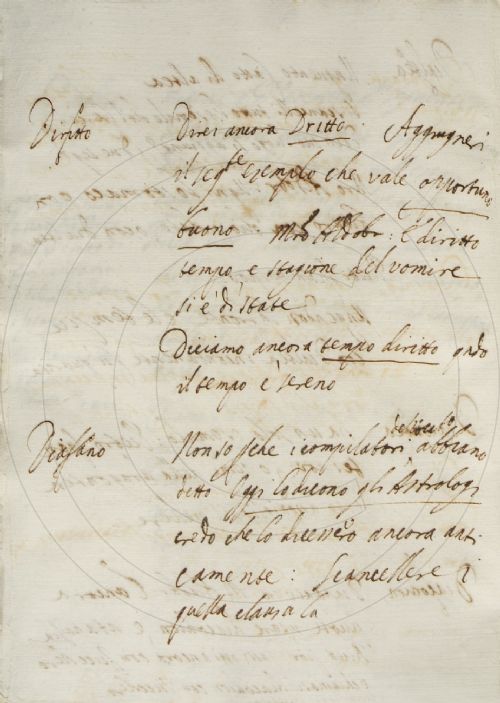 Diritto Direi ancora Dritto. Aggiugnerei
il seg.te esempio che vale opportuno
buono M.o Aldobr: è diritto
tempo, e stagione del vomire
si è di state
Diciamo ancora tempo diritto qndo
il tempo è sereno
Non so che i compilatori abbiano
detto Oggi lo dicono gli Astrologi
credo che lo dicevero ancora anti
camente: Scancellere i
questa clausula